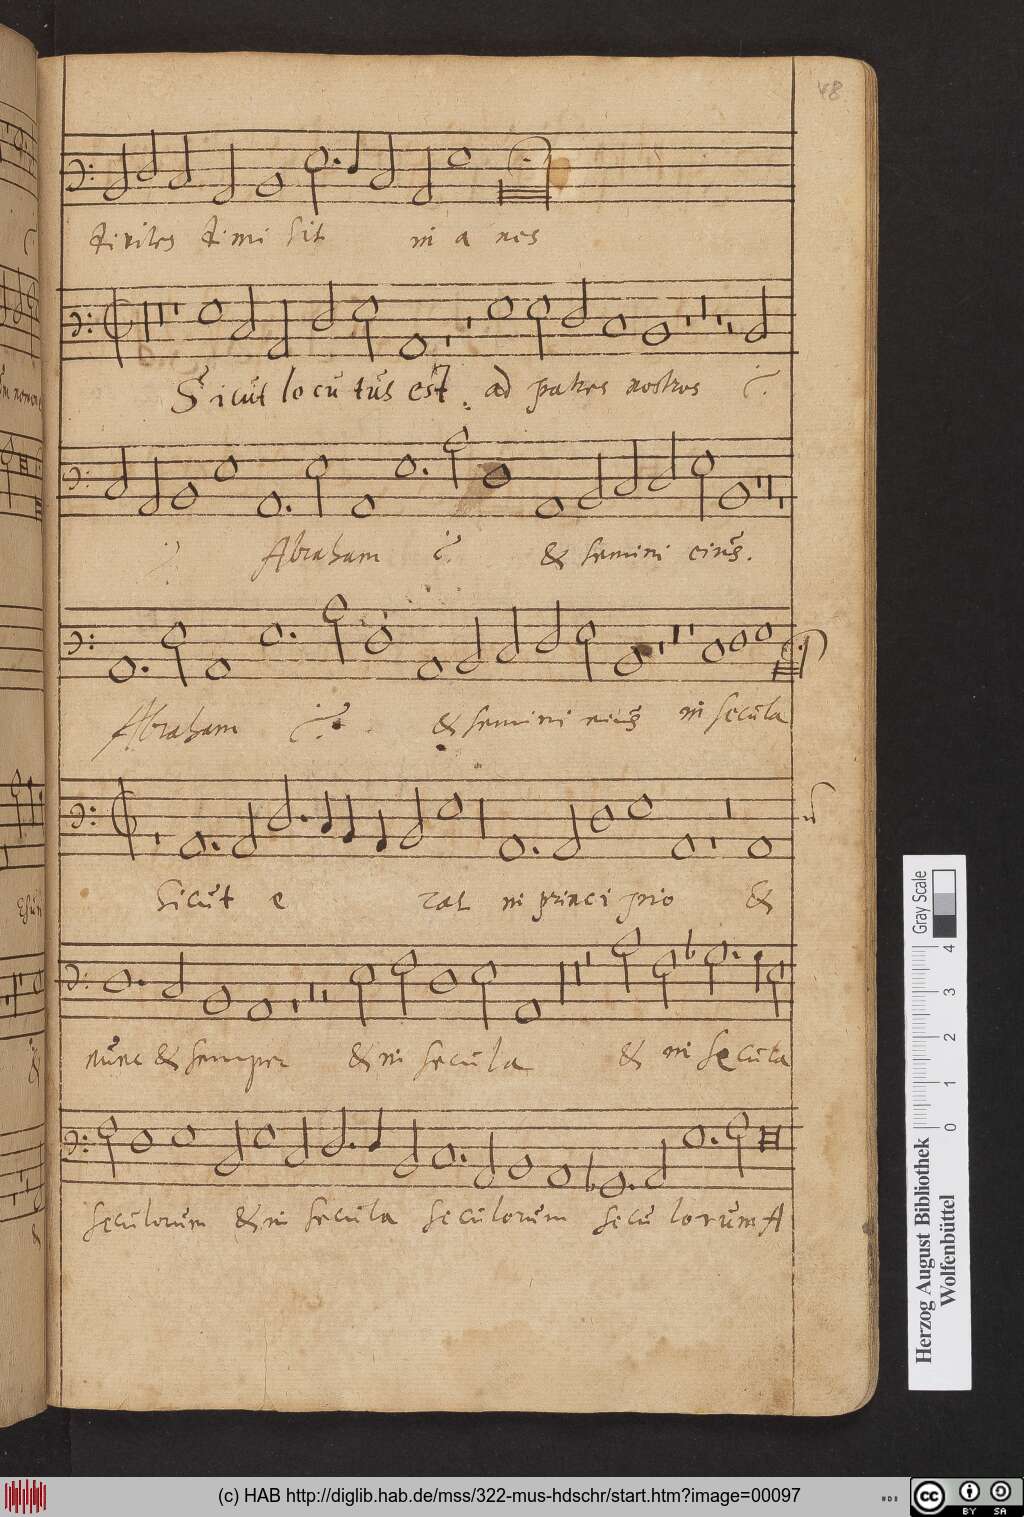 48
divites dimi sit in a nes
Sicut locu tus est ad patres nostros
Abraham & semini eius.
Abraham & semini eius in secula
Sicut e rat in princi pio &
nunc & semper & in secula & in secula
seculorum & in secula seculorum secu lorum A
Gray Scale
0 1 2 3 4
Herzog August Bibliothek
Wolfenbüttel
(c) HAB http://diglib.hab.de/mss/322-mus-hdschr/start.htm?image=00097
cc BY SA